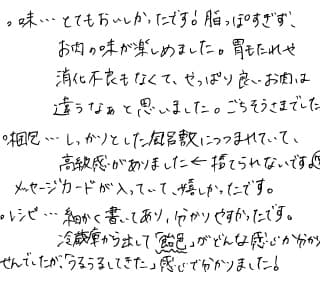 。味…とてもおいしかったです！脂っぽすぎず、
お肉の味が楽しめました。胃もたれや
消化不良もなくて、やっぱり良いお肉は
違うなぁと思いました。ごちそうさまでした
○梱包…しっかりとした風呂敷につつまれていて、
高級感がありました←捨てられないです。
メッセージカードが入っていて、嬉しかったです。
○レシピ…細かく書いてあり、分かりやすかったです。
冷蔵庫から出して「飴色」がどんな感じか分か
せんでしたが、「うるうるしてきた」感じで分かりました！